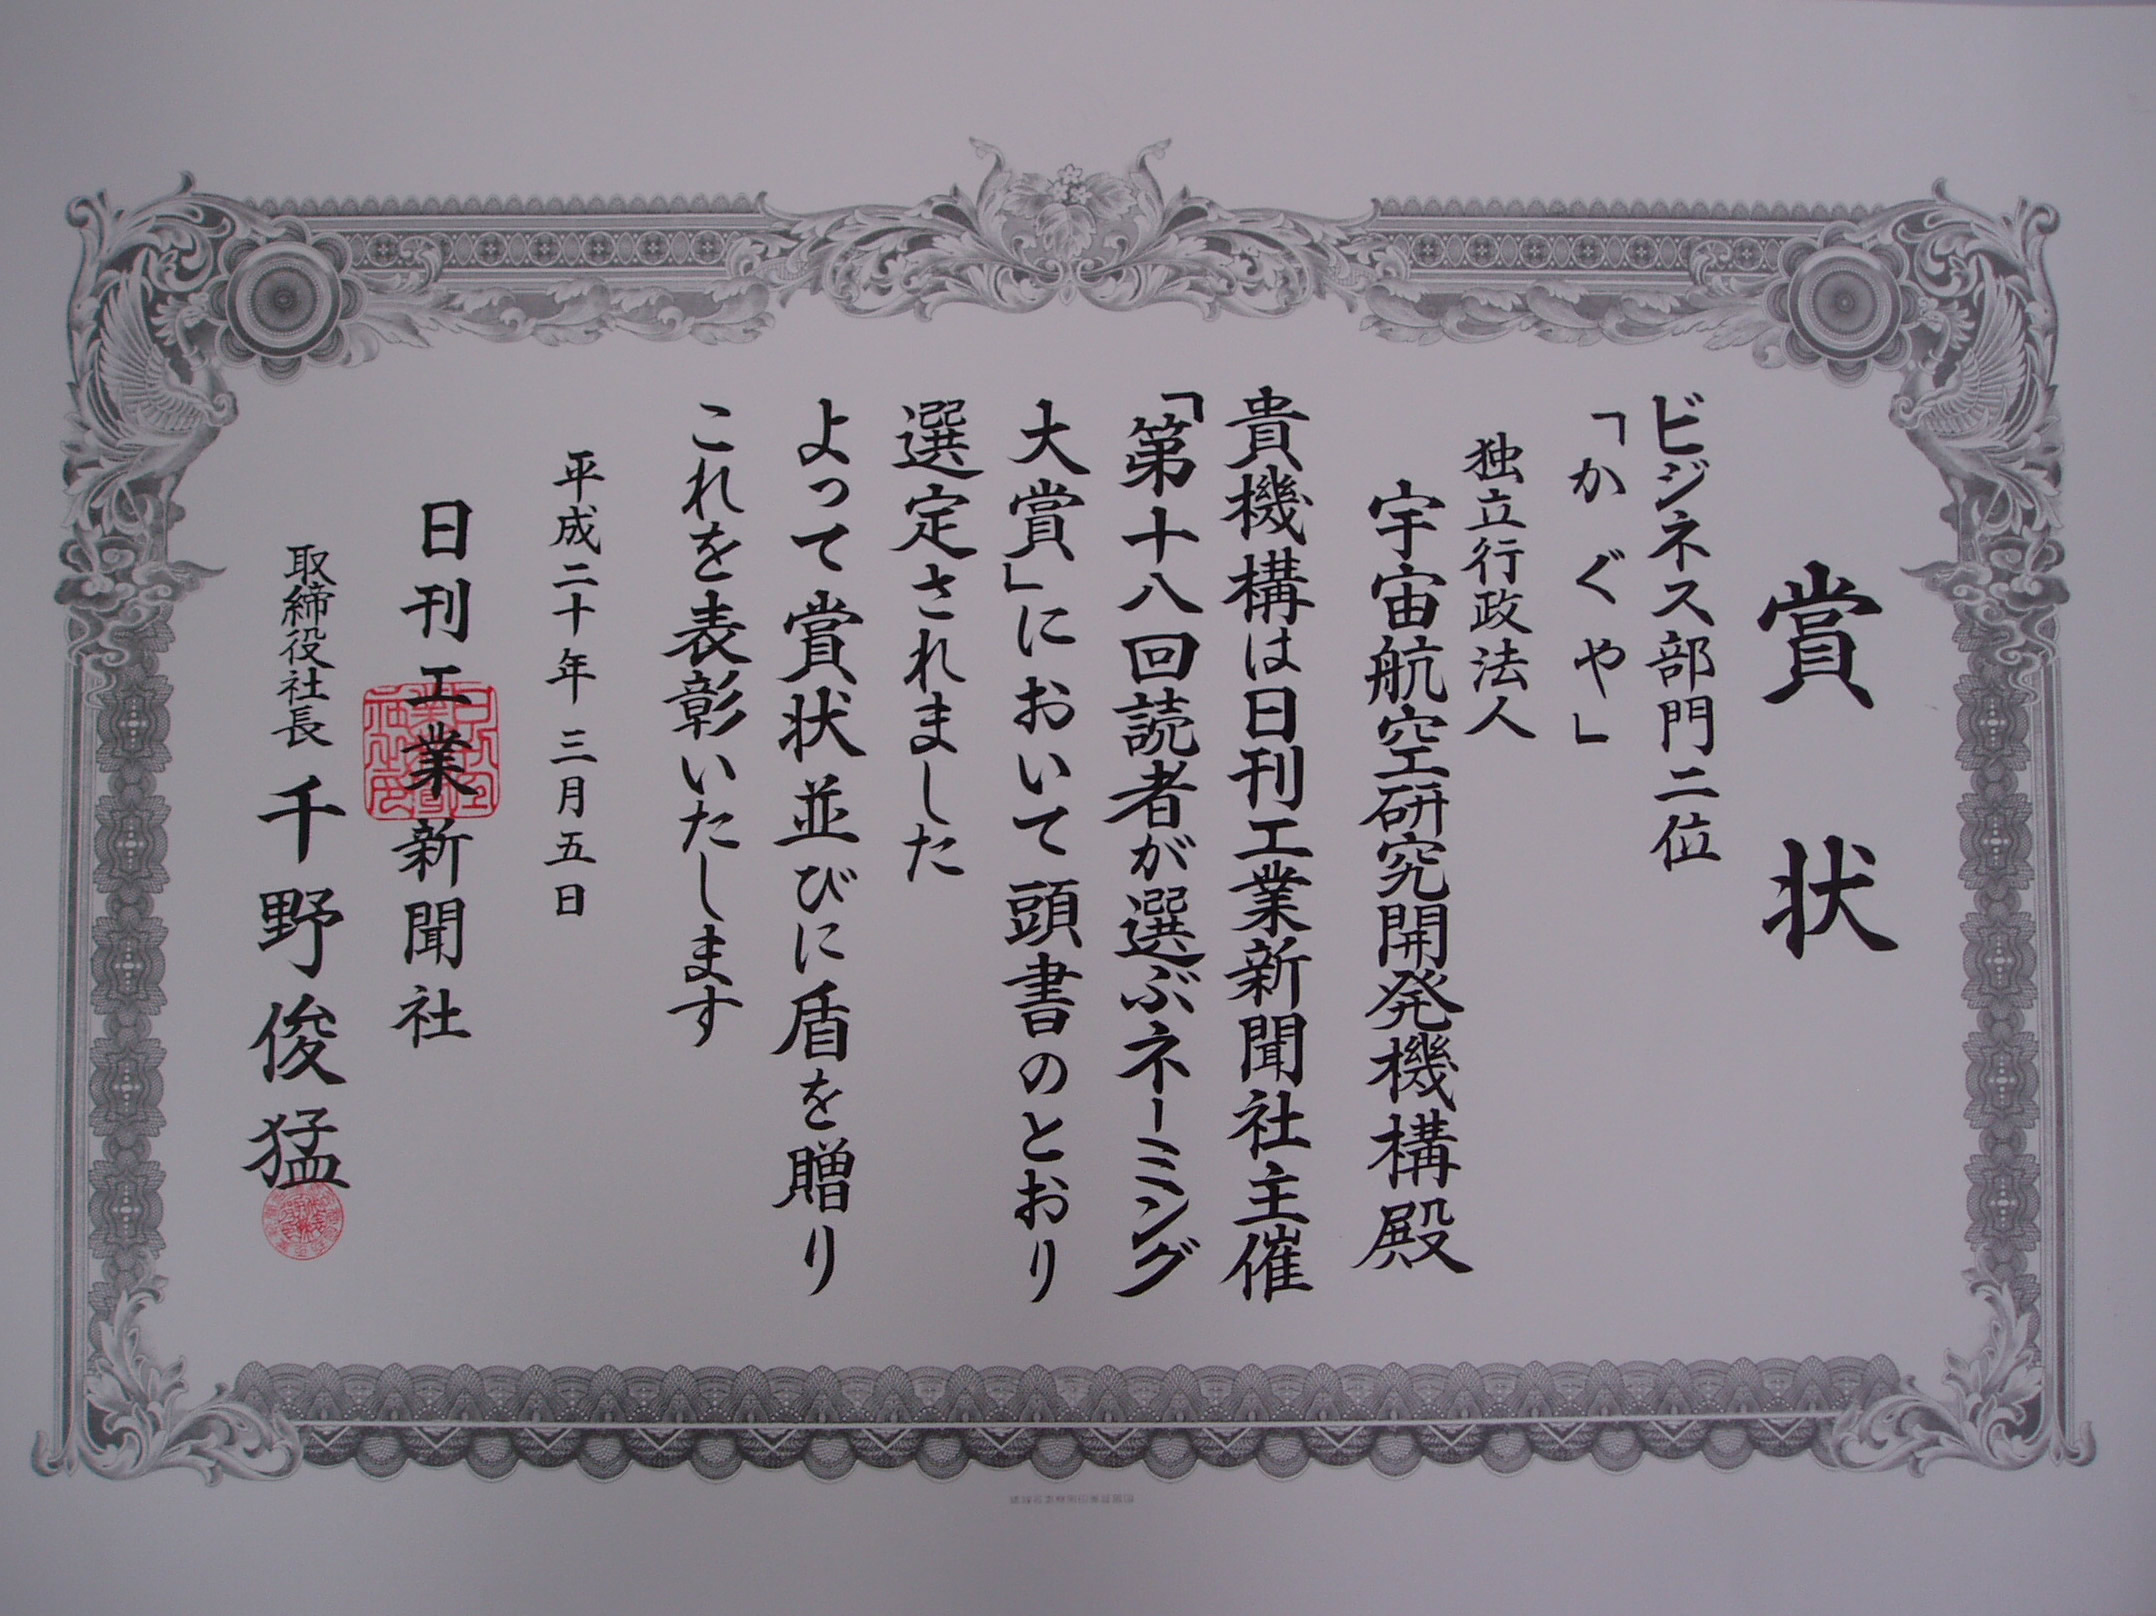 賞状
ビジネス部門二位
「かぐや」
独立行政法人
宇宙航空研究開発機構殿
貴機構は日刊工業新聞社主催
「第十八回読者が選ぶネーミング
大賞」において頭書のとおり
選定されました
よって賞状並びに盾を贈り
これを表彰いたします
平成二十年三月五日
日刊工業新聞社
取締役社長 千野俊猛